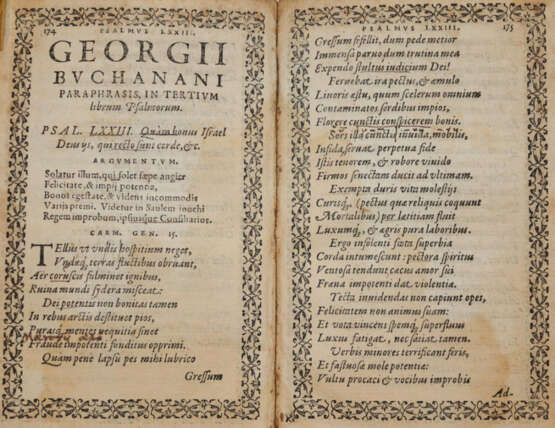 174 PSALMVS LXXIII.
GEORGII
BVCHANANI
PARAPHRASIS, IN TERTIVM
librum Psalmorum.
PSAL. LXXIII. Quàm bonus Israel
Deus ijs, qui recto sunt corde, &c.
ARGVMENTVM.
Solatur illum, qui solet sæpe angier
Felicitate, & impij potentia,
Bonos egestate, & videns incommodis
Variis premi. Videtur in Saulem inuehi
Regem improbum, ipsiusque Consiliarios.
CARM. GEN. 15.
TEllus vt vndis hospitium neget,
Vndáq; terras fluctibus obruant,
Aër coruscis fulminet ignibus,
Ruina mundi sydera misceat:
Dei potentis non bonitas tamen
In rebus arctis destituet pios,
Purasq; mentes nequitia sinet
Fraude impotenti funditus opprimi.
Quàm penè lapsu pes mihi lubrico
Gressum
PSALMVS LXXIII. 175
Gressum fefellit, dum pede metior
Immensa paruo, dum trutina mea
Expendo stultus iudicium Dei!
Feruebat ira pectus, & æmulo
Liuoris æstu, quum scelerum omnium
Contaminatos sordibus impios,
Florere cunctis conspicerem bonis.
Sors illa cunctis inuisa, mobilis,
Infida, seruat perpetua fide
Istis tenorem, & robore viuido
Firmos senectam ducit ad vltimam.
Exempta duris vita molestijs
Curisq́; (pectus qua reliquis coquunt
Mortalibus) per lætitiam fluit
Luxumq́;, & ægris pura laboribus.
Ergo insolenti fœta superbia
Corda intumescunt: pectora spiritus
Ventosa tendunt: cæcus amor sui
Fræna impotenti dat violentia.
Tecta inuidendas non capiunt opes,
Felicitatem non animus suam:
Et vota vincens spemq́;, superfluus
Luxu fatigat, nec satiat tamen.
Verbis minores terrificant feris,
Et fastuosæ mole potentiæ:
Vultu procaci & vocibus improbis
Ad-